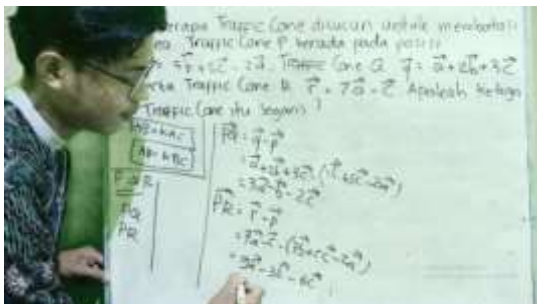 Traffic Cone disusun untuk membatasi
Traffic Cone P berada pada posisi
= 3b⃗ + 5c⃗ - 2a⃗, Traffic Cone Q q⃗ = a⃗ + 2b⃗ + 3c⃗
Traffic Cone R r⃗ = 7a⃗ - c⃗ Apakah ketiga
Traffic Cone itu segaris?
AB = k BC
P Q R
PQ
PR
PQ⃗ = q⃗ - p⃗
= 3a⃗ - b⃗ - 2c⃗
PR⃗ = r⃗ - p⃗
= 7a⃗ - c⃗ - (3b⃗ + 5c⃗ - 2a⃗)
= 9a⃗ - 3b⃗ - 6c⃗